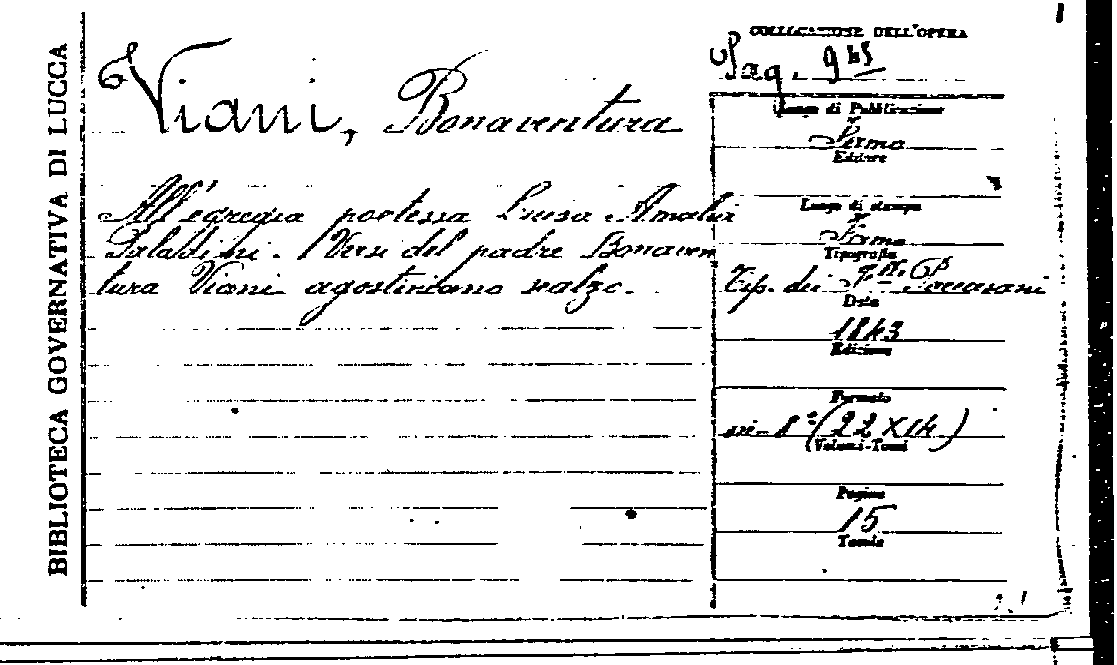 BIBLIOTECA GOVERNATIVA DI LUCCA
Viani, Bonaventura
All'egregia poetessa Luisa Amalia
Paladini. Versi del padre Bonaven
tura Viani agostiniano scalzo.
COLLOCAZIONE DELL'OPERA
Luogo di Pubblicazione
Fermo
Editore
Luogo di stampa
Fermo
Tipografia
Tip. dei
Data
1843
Edizione
Formato
in-8° (22 X 14)
Volumi-Tomi
Pagine
15
Tavole